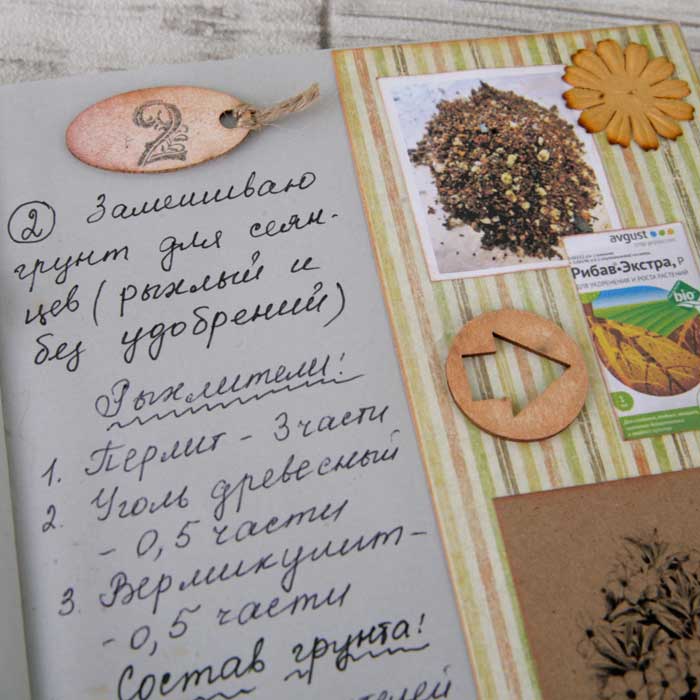 2
② Замешиваю
грунт для сеян-
цев (рыхлый и
без удобрений)
Рыхлители!
1. Перлит - 3 части
2. Уголь древесный
- 0,5 части
3. Вермикулит-
- 0,5 части
Состав грунта!
avgust
Рибав-Экстра, Р
ДЛЯ УКОРЕНЕНИЯ И РОСТА РАСТЕНИЙ
bio